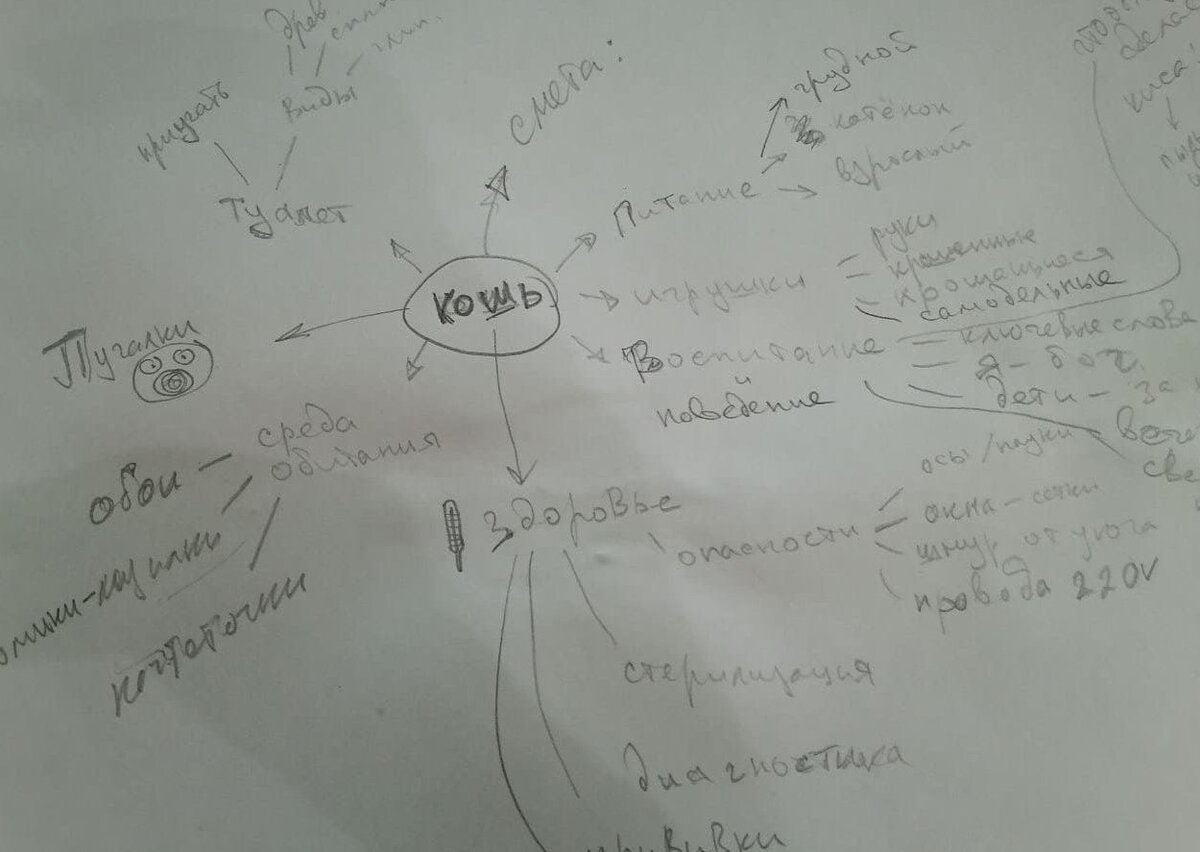 древ
глин.
смета:
приучать
виды
туалет
грудной
котёнок
взрослый
Питание
кошь
игрушки
руки
крошащиеся
самодельные
Воспитание
и
поведение
ключевые слова
я - бог.
дети - за
Пугалки
среда
обитания
обои
когтеточки
здоровье
опасности
осы / пауки
окна - сетки
шнур от утюга
провода 220V
стерилизация
диагностика
прививки